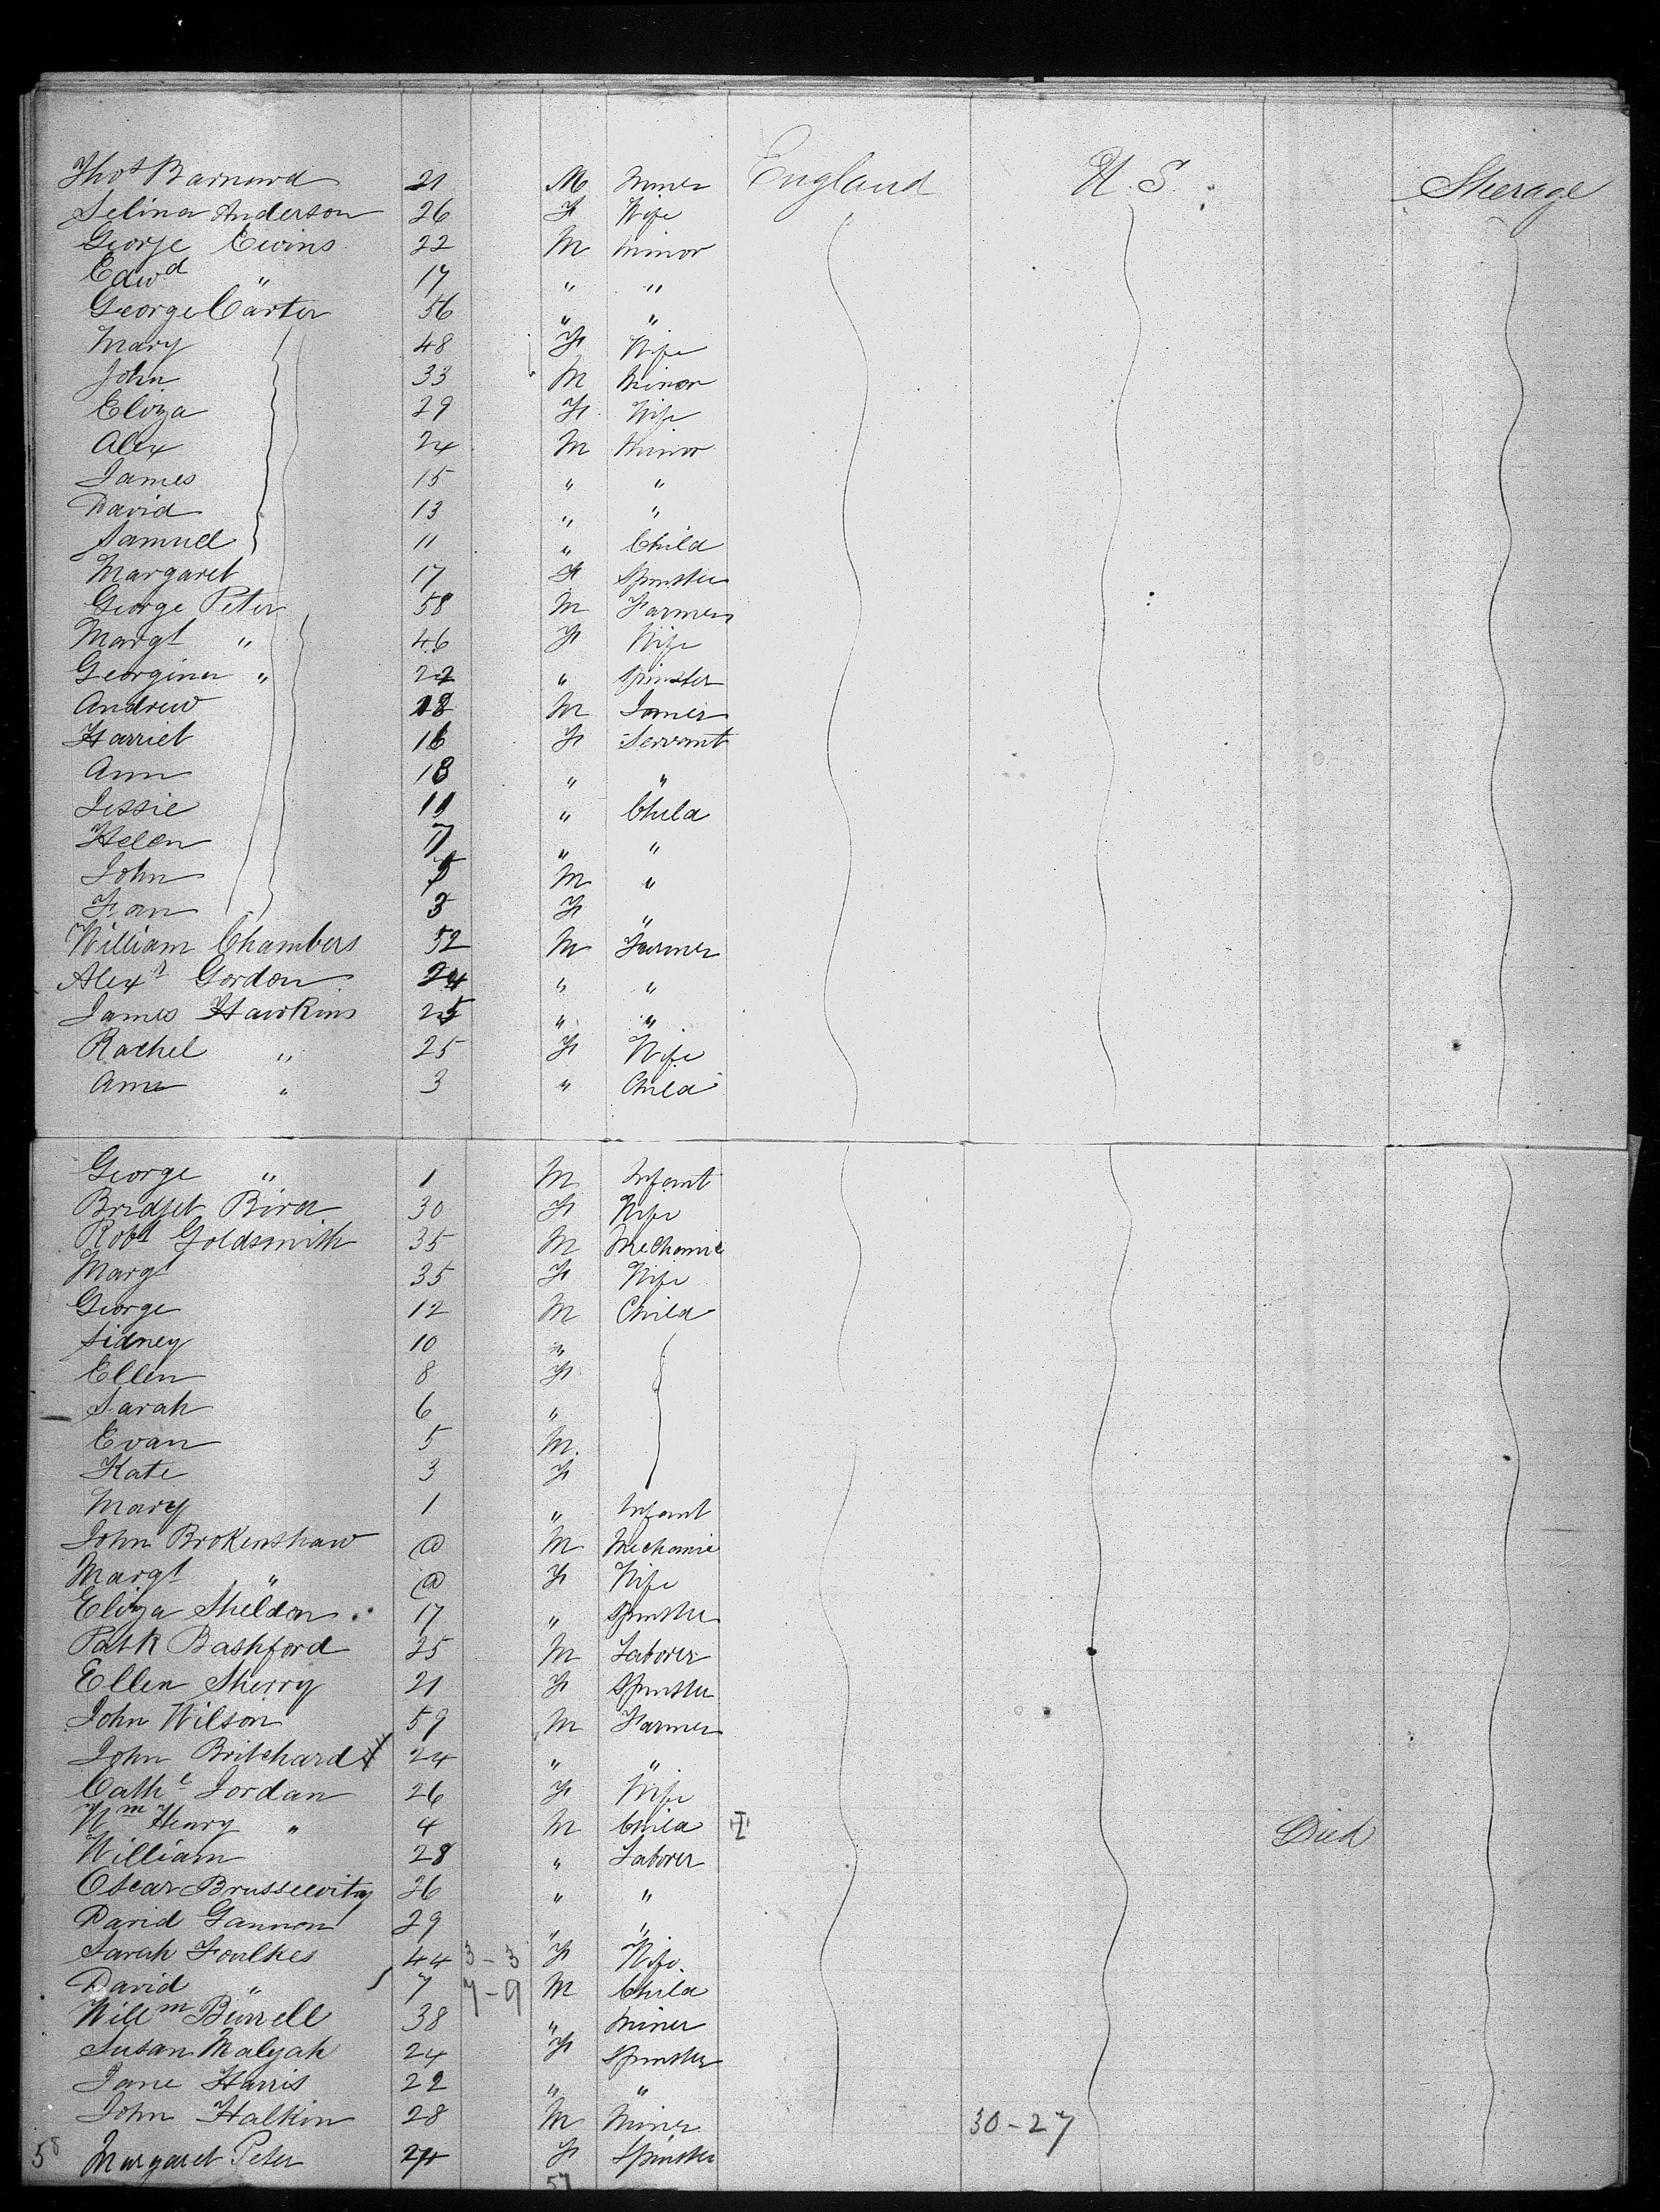 Thos Barnard 21 M Miner England U.S. Steerage
Selina Anderson 26 F Wife
George Ewins 22 M Minor
Edwd " 17 " "
George Carter 56 " "
Mary 48 F Wife
John 33 M Minor
Eliza 29 F Wife
Alex 24 M Minor
James 15 " "
David 13 " "
Samuel 11 " Child
Margaret 17 F Spinster
George Peter 58 M Farmer
Margt " 46 F Wife
Georgina " 22 " Spinster
Andrew 18 M Joiner
Harriet 16 F Servant
Ann 18 " "
Jessie 11 " Child
Helen 7 " "
John 5 M "
Fan 3 F "
William Chambers 52 M Farmer
Alexr Gordon 24 " "
James Hawkins 25 " "
Rachel " 25 F Wife
Ann " 3 " Child
George " 1 M Infant
Bridget Bird 30 F Wife
Robt Goldsmith 35 M Mechanic
Margt 35 F Wife
George 12 M Child
Sidney 10 "
Ellen 8 F
Sarah 6 "
Evan 5 M
Kate 3 F
Mary 1 " Infant
John Brokenshaw @ M Mechanic
Margt " @ F Wife
Eliza Sheldon 17 " Spinster
Patk Bashford 25 M Laborer
Ellen Sherry 21 F Spinster
John Wilson 59 M Farmer
John Britchard X 24 " "
Cathe Jordan 26 F Wife
Wm Henry " 4 M Child Died
William 28 " Laborer
Oscar 26 " "
David Gannon 29 " "
Sarah Foulkes 44 3-3 F Wife
David " 7 7-9 M Child
Willm Burrell 38 " Miner
Susan Malyah 24 F Spinster
Jane Harris 22 " "
John Halkin 28 M Miner 30-27
58 Margaret Peter 24 F Spinster
57